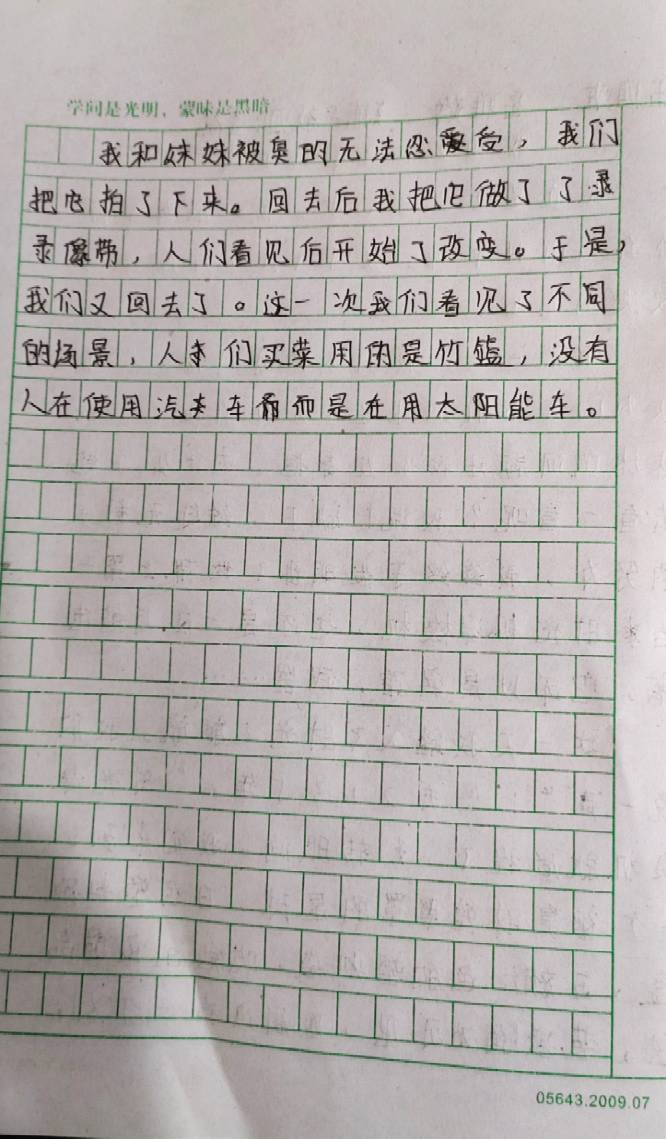 学问是光明，蒙昧是黑暗
我和妹妹被臭的无法忍受，我们
把它拍了下来。回去后我把它做了了录
录像带，人们看见后开始了改变。于是，
我们又回去了。这一次我们看见了不同
的场景，人们买菜用的是竹篮，没有
人在使用汽车而是在用太阳能车。
05643.2009.07